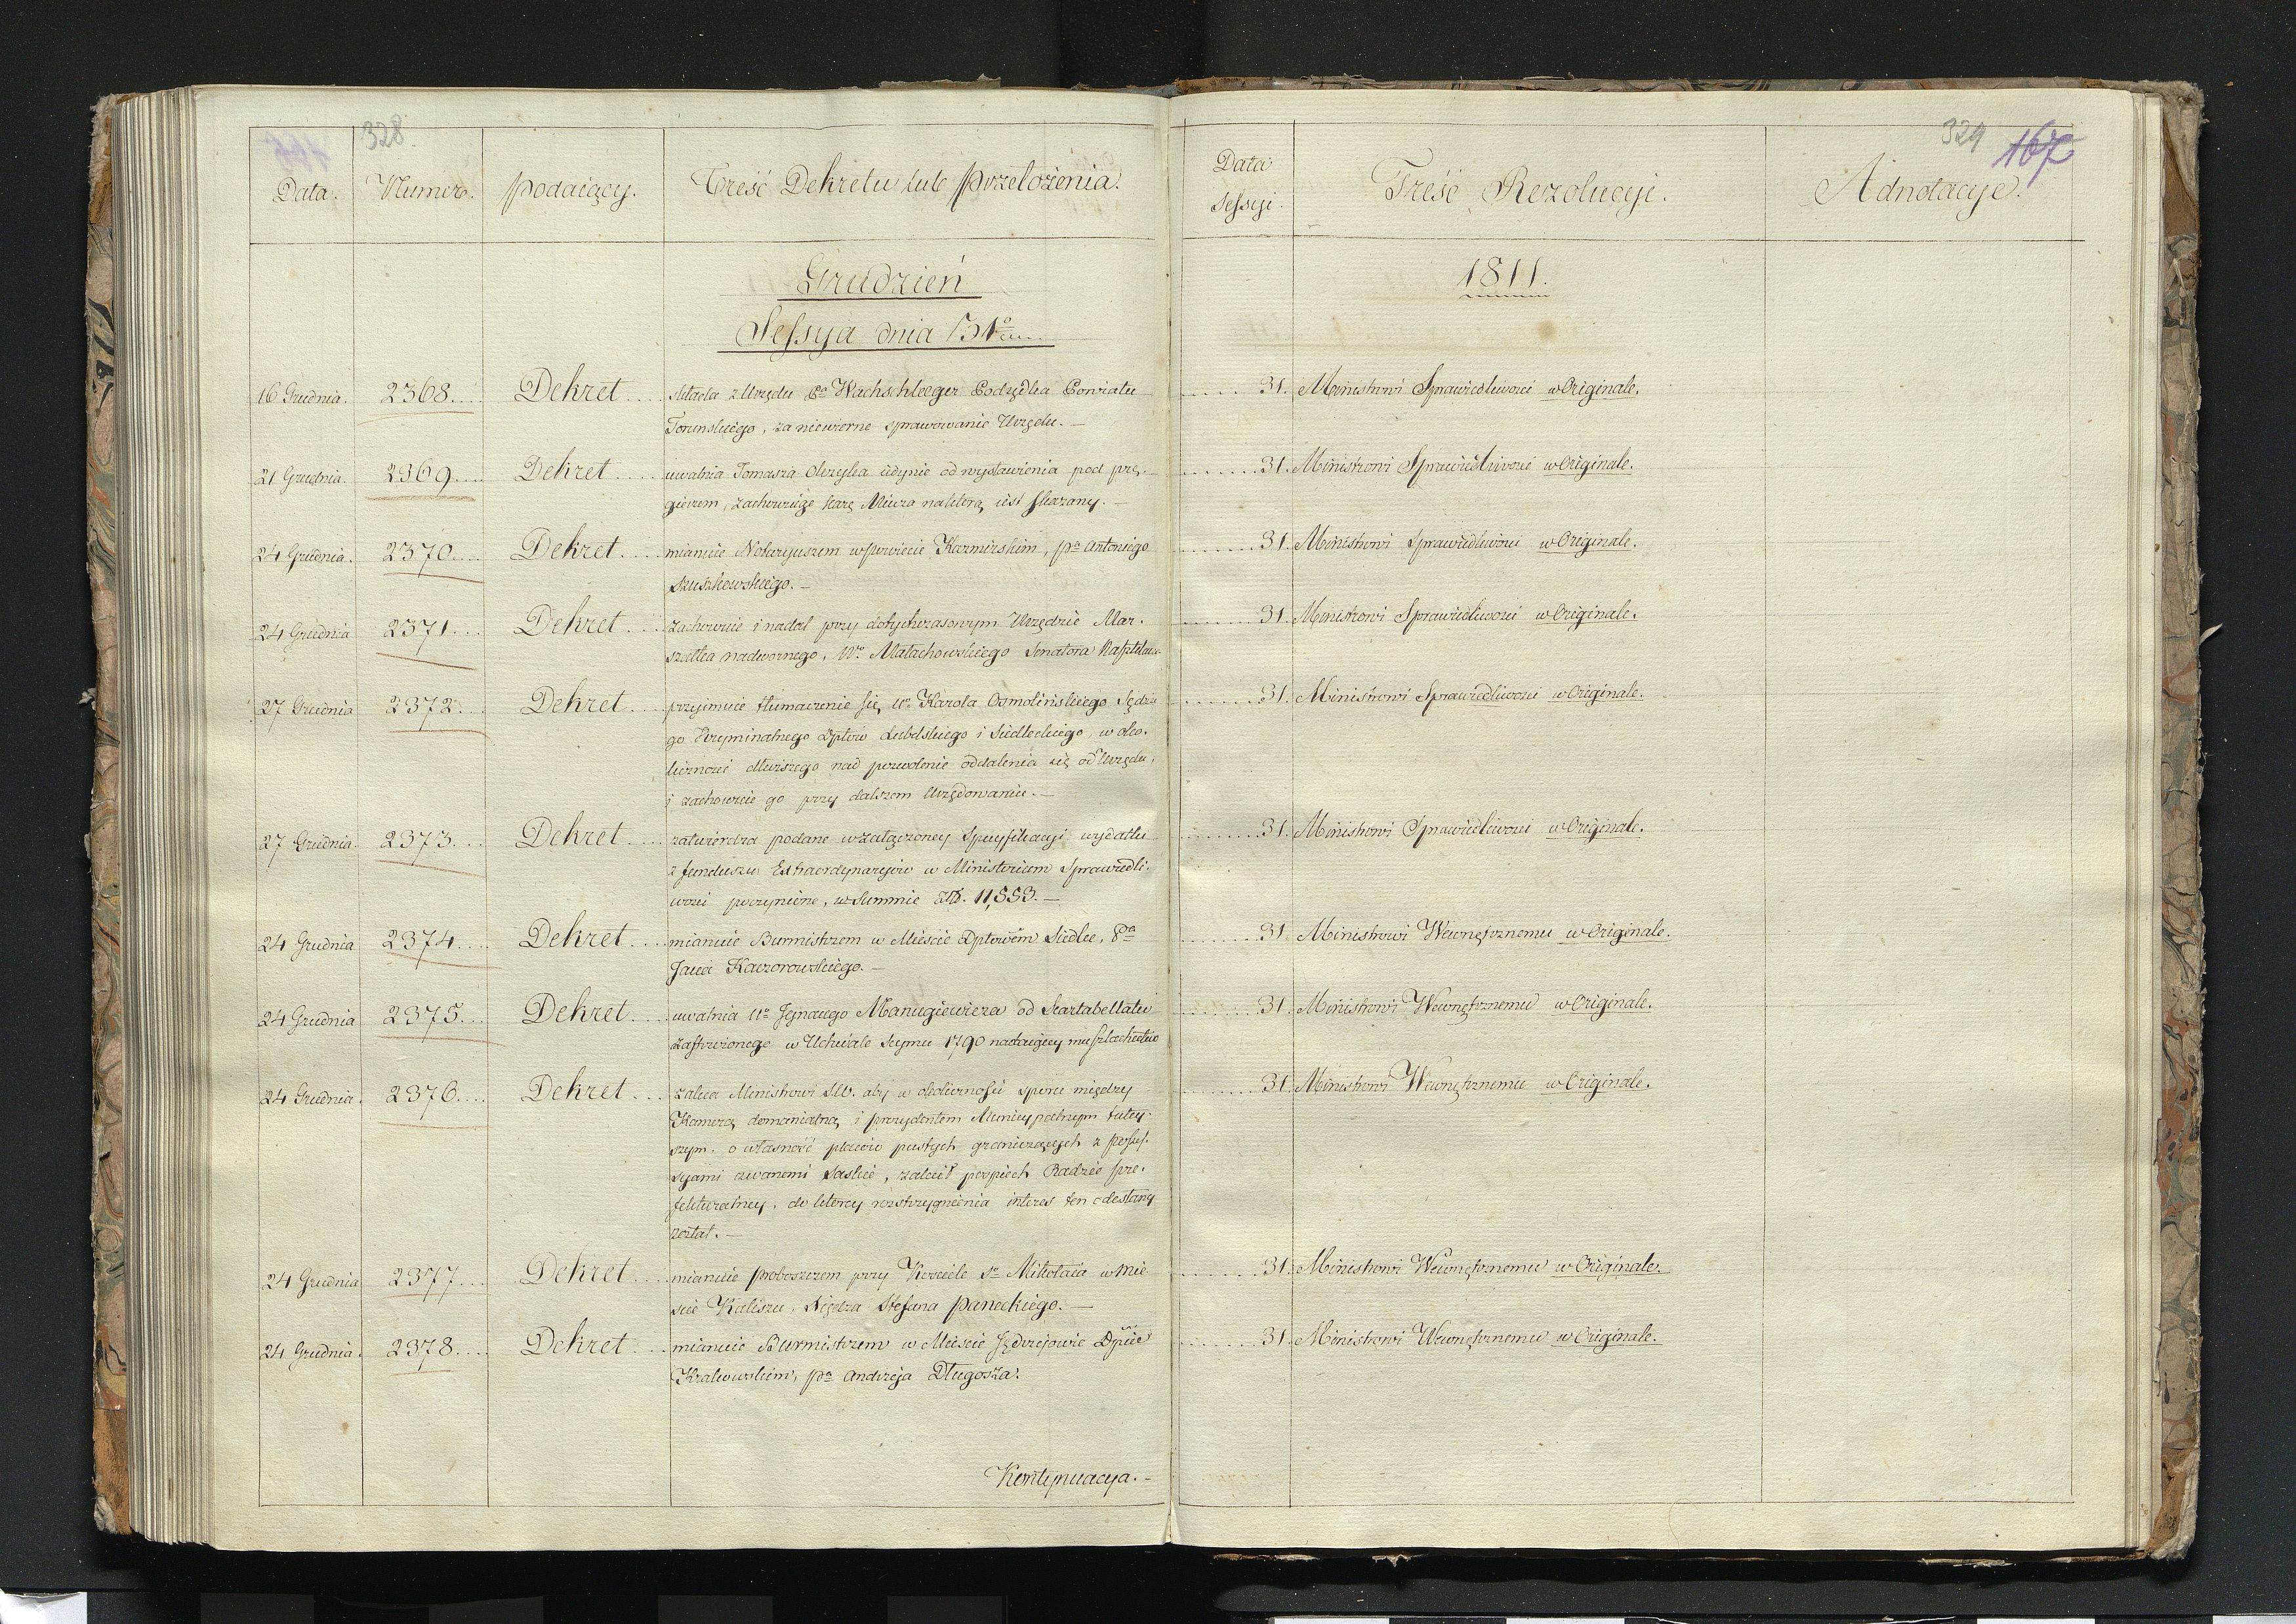 328.
Data. Numero. podaiący. Treść Dekretu lub przełożenia.
Grudzień
Sessya dnia 31º
16 Grudnia. 2368.... Dekret.... składa z Urzędu Pª Wachschleger Podsędka Powiatu
Toruńskiego, za niewierne sprawowanie Urzędu. —
21 Grudnia. 2369.... Dekret.... uwalnia Tomasza iedynie od wystawienia pod prę-
gierzem, zachowuiąc karę Miecza na którą iest skazany. —
24 Grudnia. 2370.... Dekret.... mianuie Notaryuszem w powiecie Kazmirskim, pª Antoniego
Szuszkowskiego. —
24 Grudnia 2371.... Dekret.... zachowuie i nadal przy dotychczasowym Urzędzie Mar-
szałka nadwornego, Wº Małachowskiego Senatora Kasztelana
27 Grudnia 2372.... Dekret.... przyimuie tłumaczenie się, Wº Karola Osmolińskiego Sędzie
go Kryminalnego Dptów Lubelskiego i Siedleckiego, w oko-
liczności dłuższego nad pozwolenie oddalenia się od Urzędu,
i zachowuie go przy dalszem Urzędowaniu. —
27 Grudnia 2373.... Dekret.... zatwierdza podane w załączoney Specyfikacyi wydatki
z funduszu Extraordynaryów w Ministerium Sprawiedli-
wości poczynione, w Summie Złp. 11,553. —
24 Grudnia 2374.... Dekret.... mianuie Burmistrzem w Mieście Dptowém Siedlce, Pª
Jana Kaczorowskiego. —
24 Grudnia 2375.... Dekret.... uwalnia Uº Jgnacego Manugiewicza od Skartabellatu
zastrzeżonego w Uchwale Seymu 1790 nadaiącey mu szlachectwo
24 Grudnia. 2376.... Dekret.... zaleca Ministrowi SW. aby w okoliczności sporu między
Kamerą domanialną i prezydentem Municypalnym tutey-
szym. o własność placów pustych graniczących z posses-
syami zwanemi Saskie, zalecił pospiech Radzie pre-
fekturalney, do którey rozstrzygnienia interes ten odesłany
został. —
24 Grudnia 2377.... Dekret.... mianuie proboszczem przy Kościele Sº Mikołaia w Mie
ście Kaliszu, Xiędza Stefana Paneckiego. —
24 Grudnia. 2378.... Dekret.... mianuie Burmistrzem w Mieście Jędrzejowie Dpcie
Krakowskim, pª Andrzeja Długosza.
Kontynuacya. —
329 167
Data Sessyi. Treść Rezolucyi. Adnotacye.
1811.
........31. Ministrowi Sprawiedliwości w Originale.
........31. Ministrowi Sprawiedliwości w Originale.
........31. Ministrowi Sprawiedliwości w Originale.
........31. Ministrowi Sprawiedliwości w Originale.
........31. Ministrowi Sprawiedliwości w Originale.
........31. Ministrowi Sprawiedliwości w Originale.
........31 Ministrowi Wewnętrznemu w Originale.
........31. Ministrowi Wewnętrznemu w Originale.
........31. Ministrowi Wewnętrznemu w Originale.
........31. Ministrowi Wewnętrznemu w Originale.
........31. Ministrowi Wewnętrznemu w Originale.